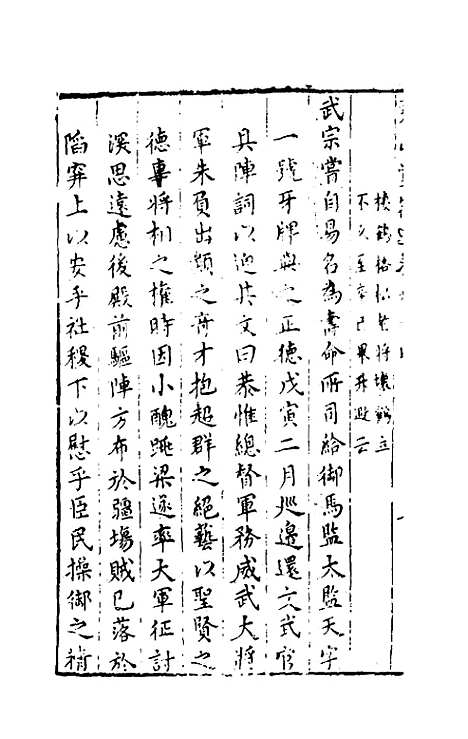 松將壞鶴立
不久至卒已果升遐云
武宗嘗自易名為壽命所司給御馬監太監天字
一號牙牌與之正德戊寅二月巡邊還文武官
具陣詞以迎其文曰恭惟總督軍務威武大將
軍朱負出類之奇才抱超群之絕藝以聖賢之
德專將相之權時因小醜跳梁遂率大軍征討
深思遠慮後殿前驅陣方布於疆場賊已落於
陷穽上以安乎社稷下以慰乎臣民操御之術